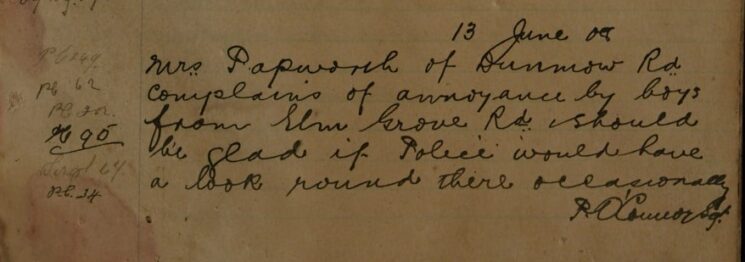 13 June 08
Mrs Papworth of Dunmow Rd
complains of annoyance by boys
from Elm Grove Rd & should
be glad if Police would have
a look round there occasionally
P. O'Connor Sgt.
PC 249
PC 62
PC 201
PC 95
Sergt 64
PC. 34